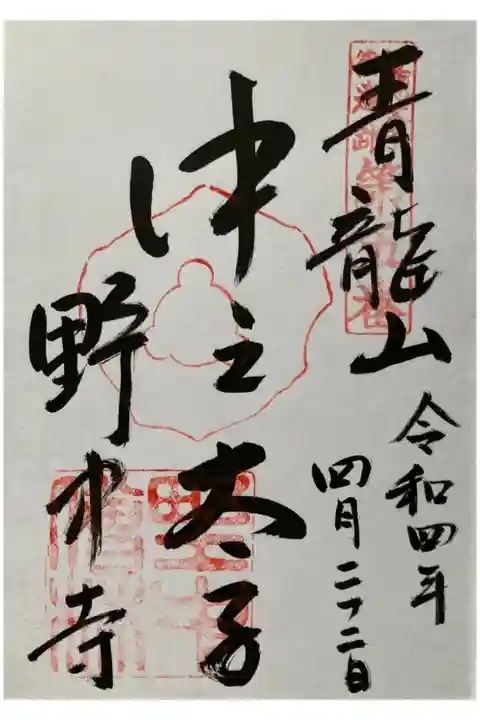 第五番
青龍山
令和四年
四月二十二日
中之太子
野中寺